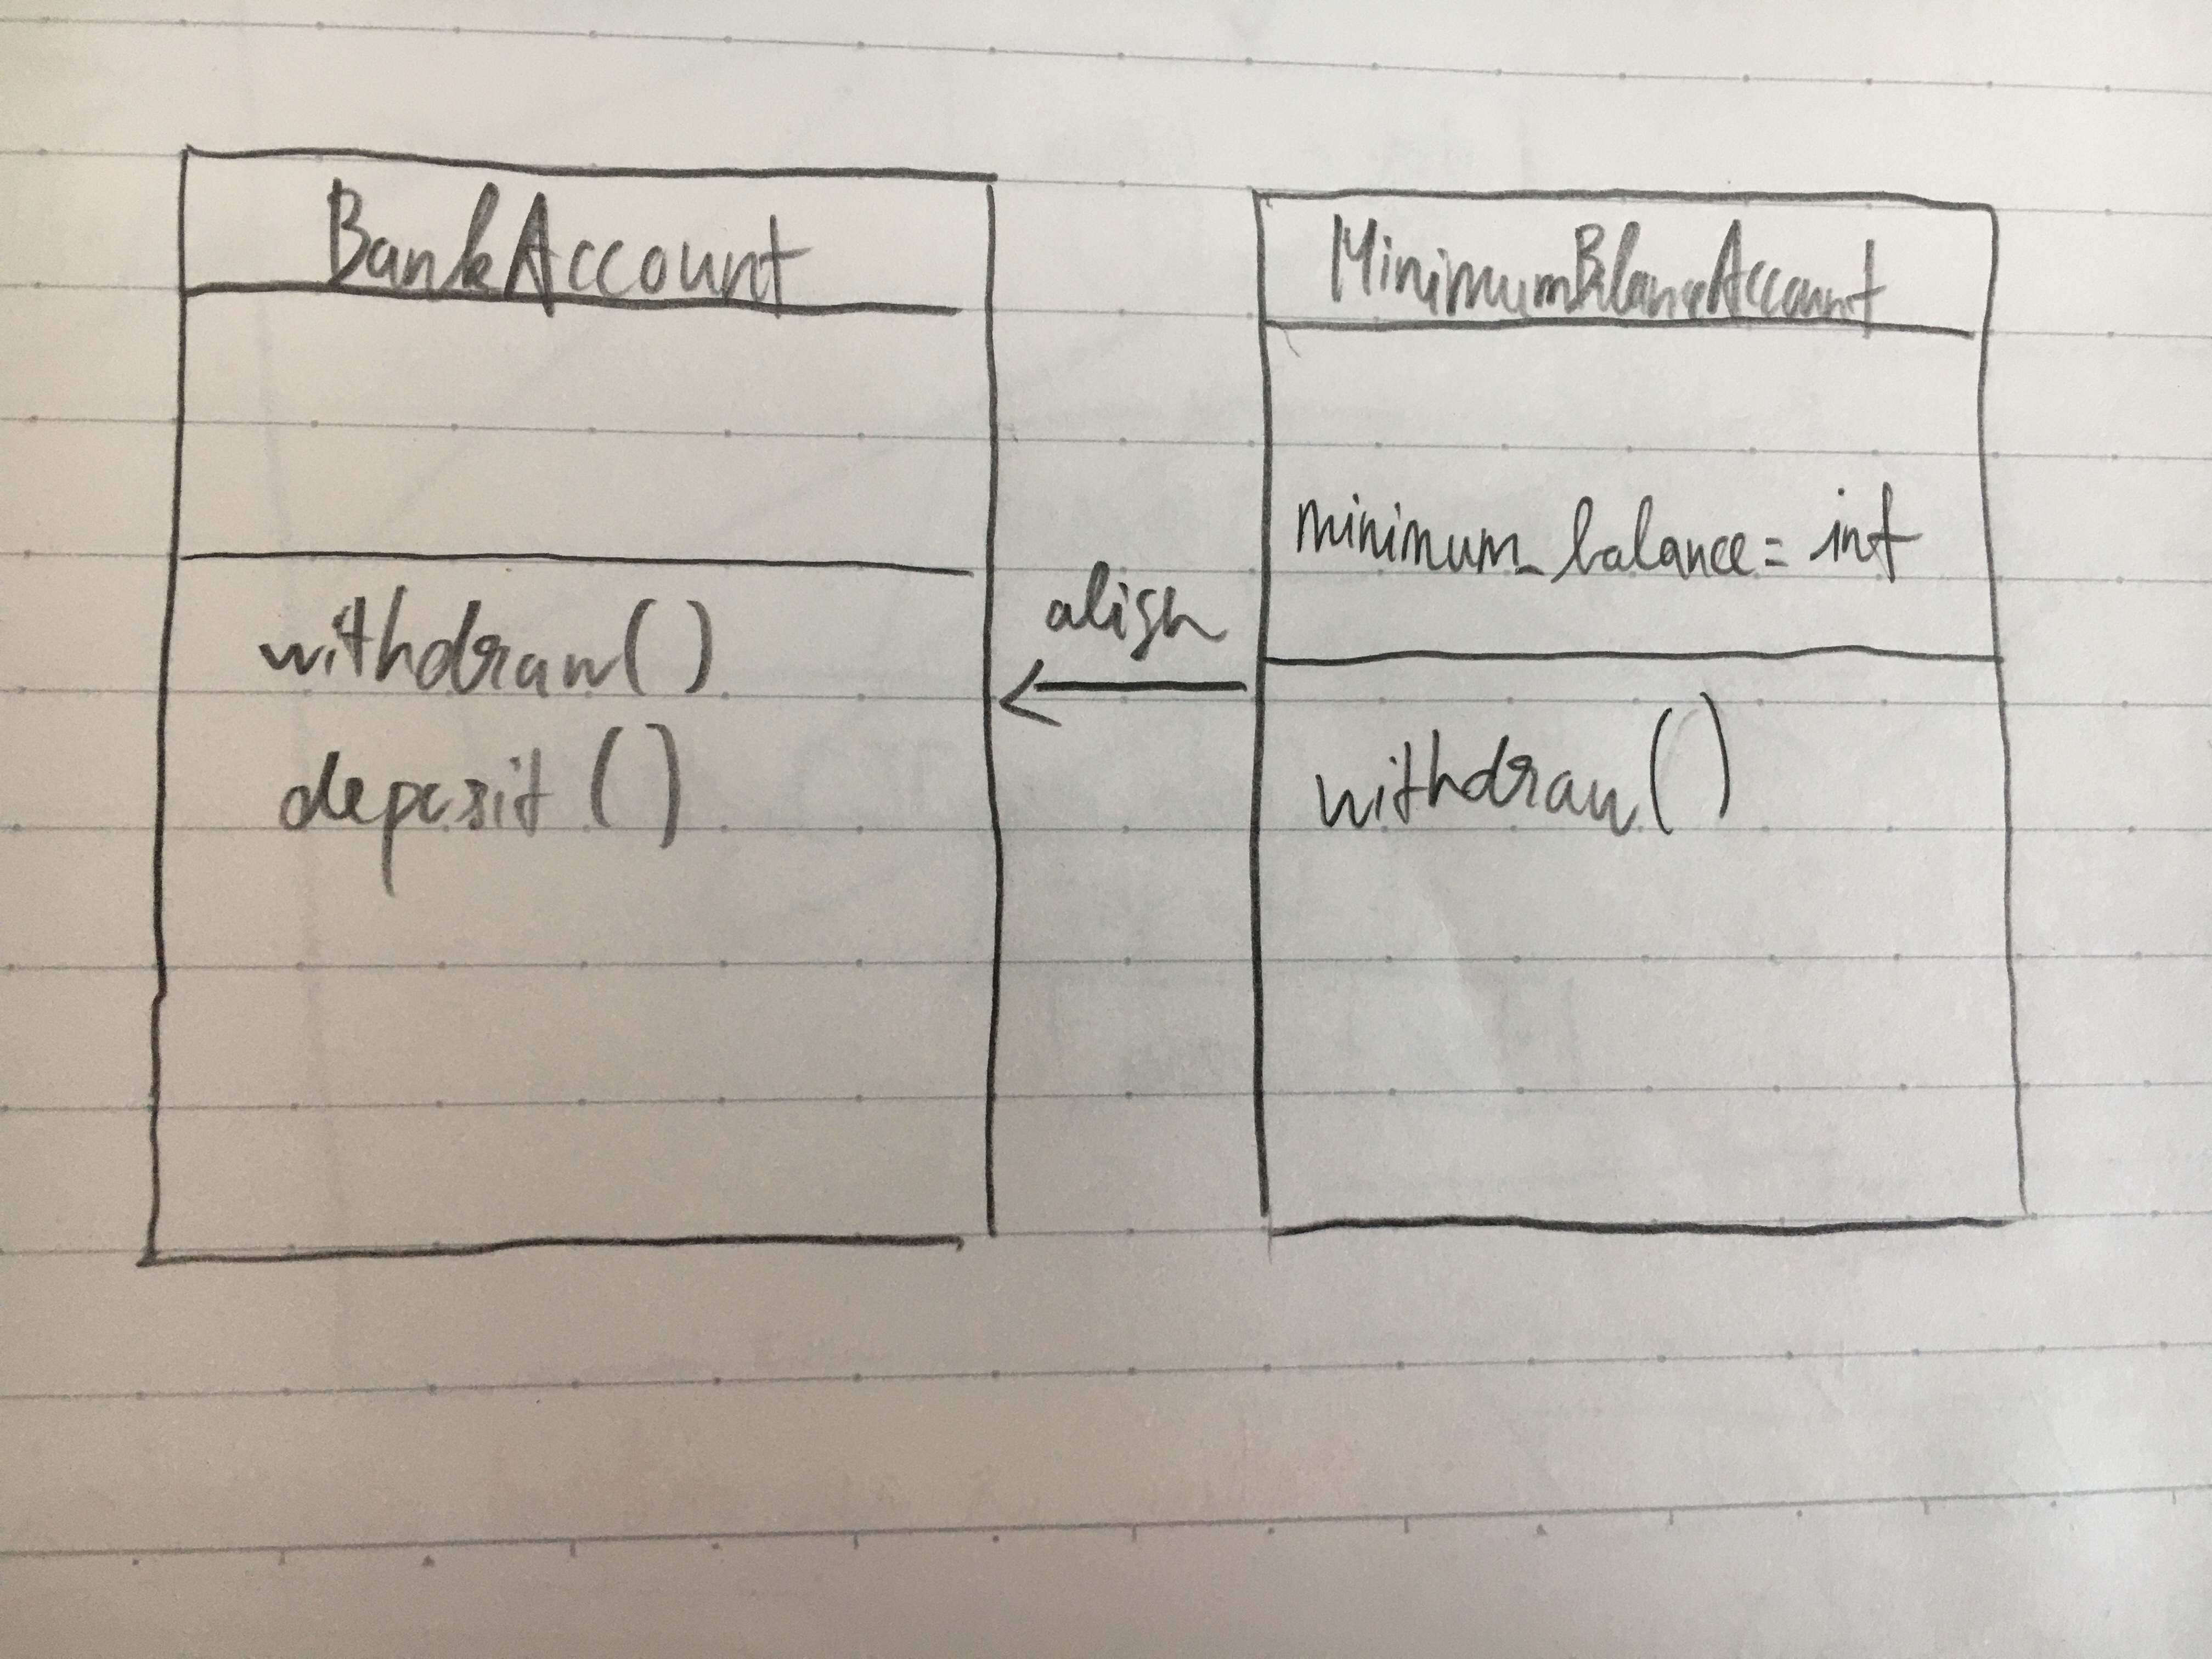 BankAccount
withdraw()
deposit()
align
MinimumBalanceAccount
minimum_balance = int
withdraw()